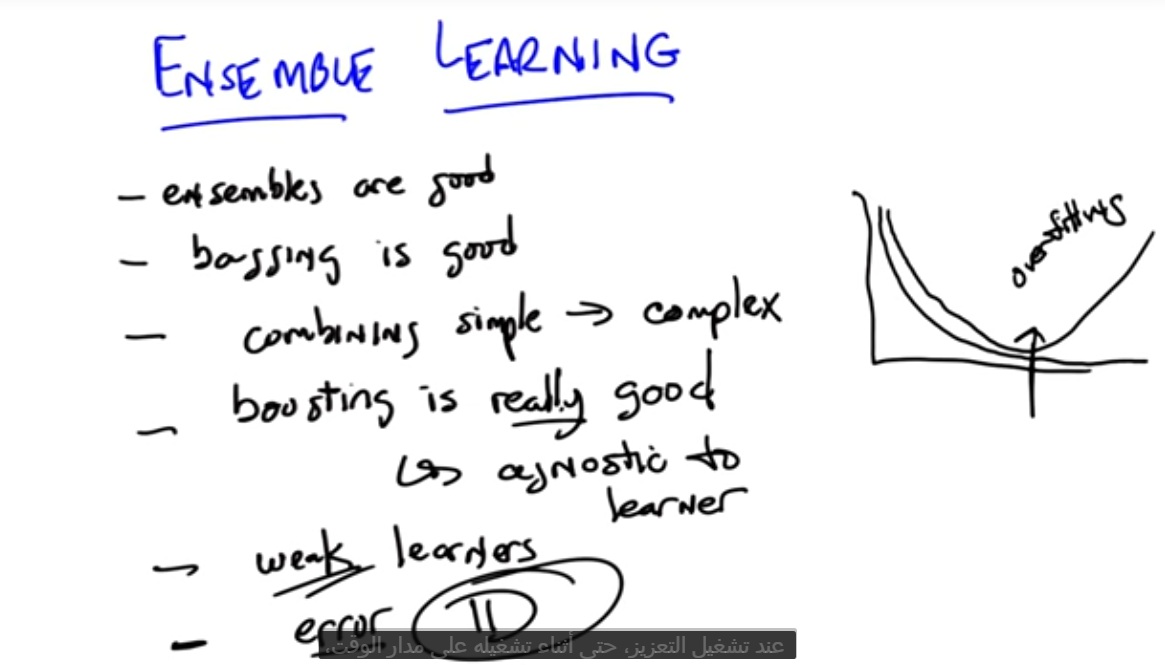 ENSEMBLE LEARNING
- ensembles are good
- bagging is good
- combining simple → complex
- boosting is really good
↳ agnostic to
learner
- weak learners
- error
عند تشغيل التعزيز، حتى أثناء تشغيله على مدار الوقت،
overfitting